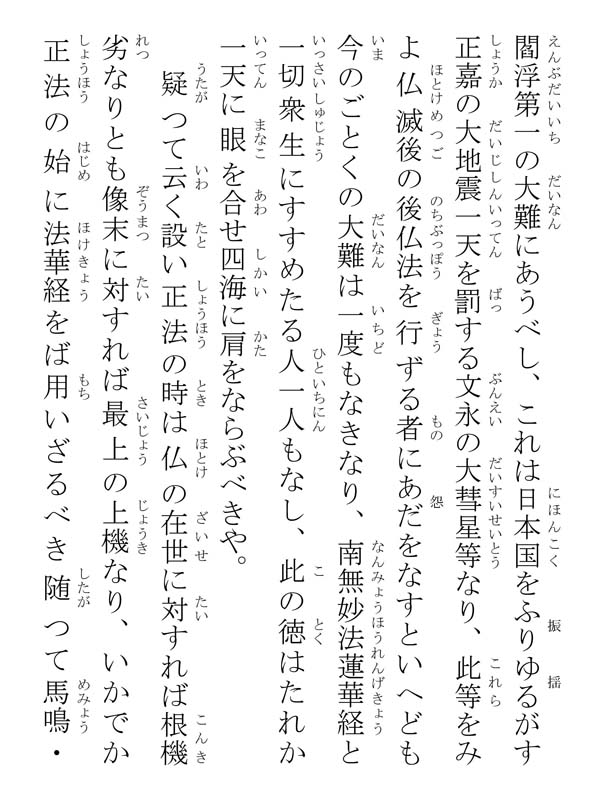 閻浮第一の大難にあうべし、これは日本国をふりゆるがす
正嘉の大地震一天を罰する文永の大彗星等なり、此等をみ
よ仏滅後の後仏法を行ずる者にあだをなすといへども
今のごとくの大難は一度もなきなり、南無妙法蓮華経と
一切衆生にすすめたる人一人もなし、此の徳はたれか
一天に眼を合せ四海に肩をならぶべきや。
疑つて云く設い正法の時は仏の在世に対すれば根機
劣なりとも像末に対すれば最上の上機なり、いかでか
正法の始に法華経をば用いざるべき随つて馬鳴・